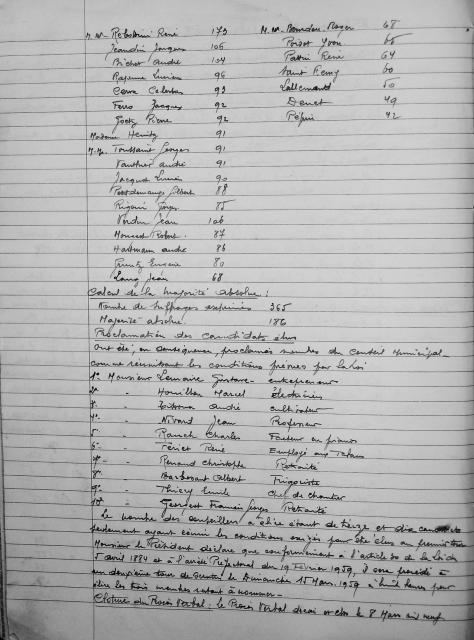 M.M. Rebstini René 173
Jeandin Jacques 106
Bichet André 104
Rayenne Lucien 96
Cerra Celestin 93
Ferro Jacques 92
Gody Pierre 92
Madame Henitz 91
M.M. Toussaint Georges 91
Vauthier André 91
Jacquot Lucien 90
Petitdemange Albert 88
Rigoni Georges 85
Verdun Jean 106
Mousset Robert 87
Hartmann André 86
Eugénie 80
Lang Jean 68
M.M. Bourdon Roger 68
Poirot Yvon 65
Patru René 64
Saint Remy 60
Lallemand 50
Denet 49
Pépin 42
Calcul de la majorité absolue :
Nombre de suffrages exprimés 365
Majorité absolue 186
Proclamation des candidats élus
Ont été, en conséquence, proclamés membres du Conseil Municipal
comme réunissant les conditions prévues par la loi
1° Monsieur Lemoine Gustave - entrepreneur
2° - Houillon Marcel Électricien
3° - André cultivateur
4° - Nivard Jean Professeur
5° - Rauch Charles Facteur en pianos
6° - Février René Employé aux Tabacs
7° - Renaud Christophe Retraité
8° - Barbesant Albert Frigoriste
9° - Thiery Emile Chef de chantier
10° - Francis Georges Retraité
Le nombre des conseillers à élire étant de treize et dix candidats
seulement ayant réuni les conditions exigées pour être élus au premier tour
Monsieur le Président déclare que conformément à l'article 30 de la loi du
5 avril 1884 et à l'arrêté Préfectoral du 19 Février 1959, il sera procédé à
un deuxième tour de scrutin le Dimanche 15 Mars 1959 à huit heures pour
élire les trois membres restant à nommer -
Clôture du Procès Verbal : le Procès Verbal dressé et clos le 8 Mars mil neuf